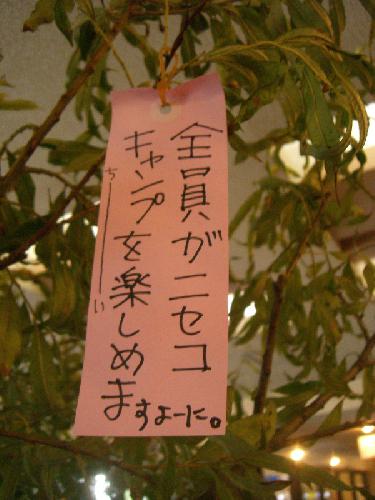 全員がニセコ
キャンプを楽しめますよーに。